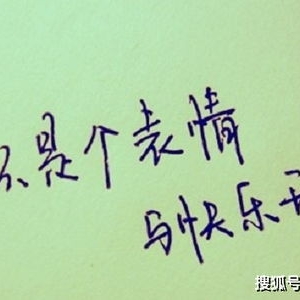 只是个表情
与快乐无
搜狐号